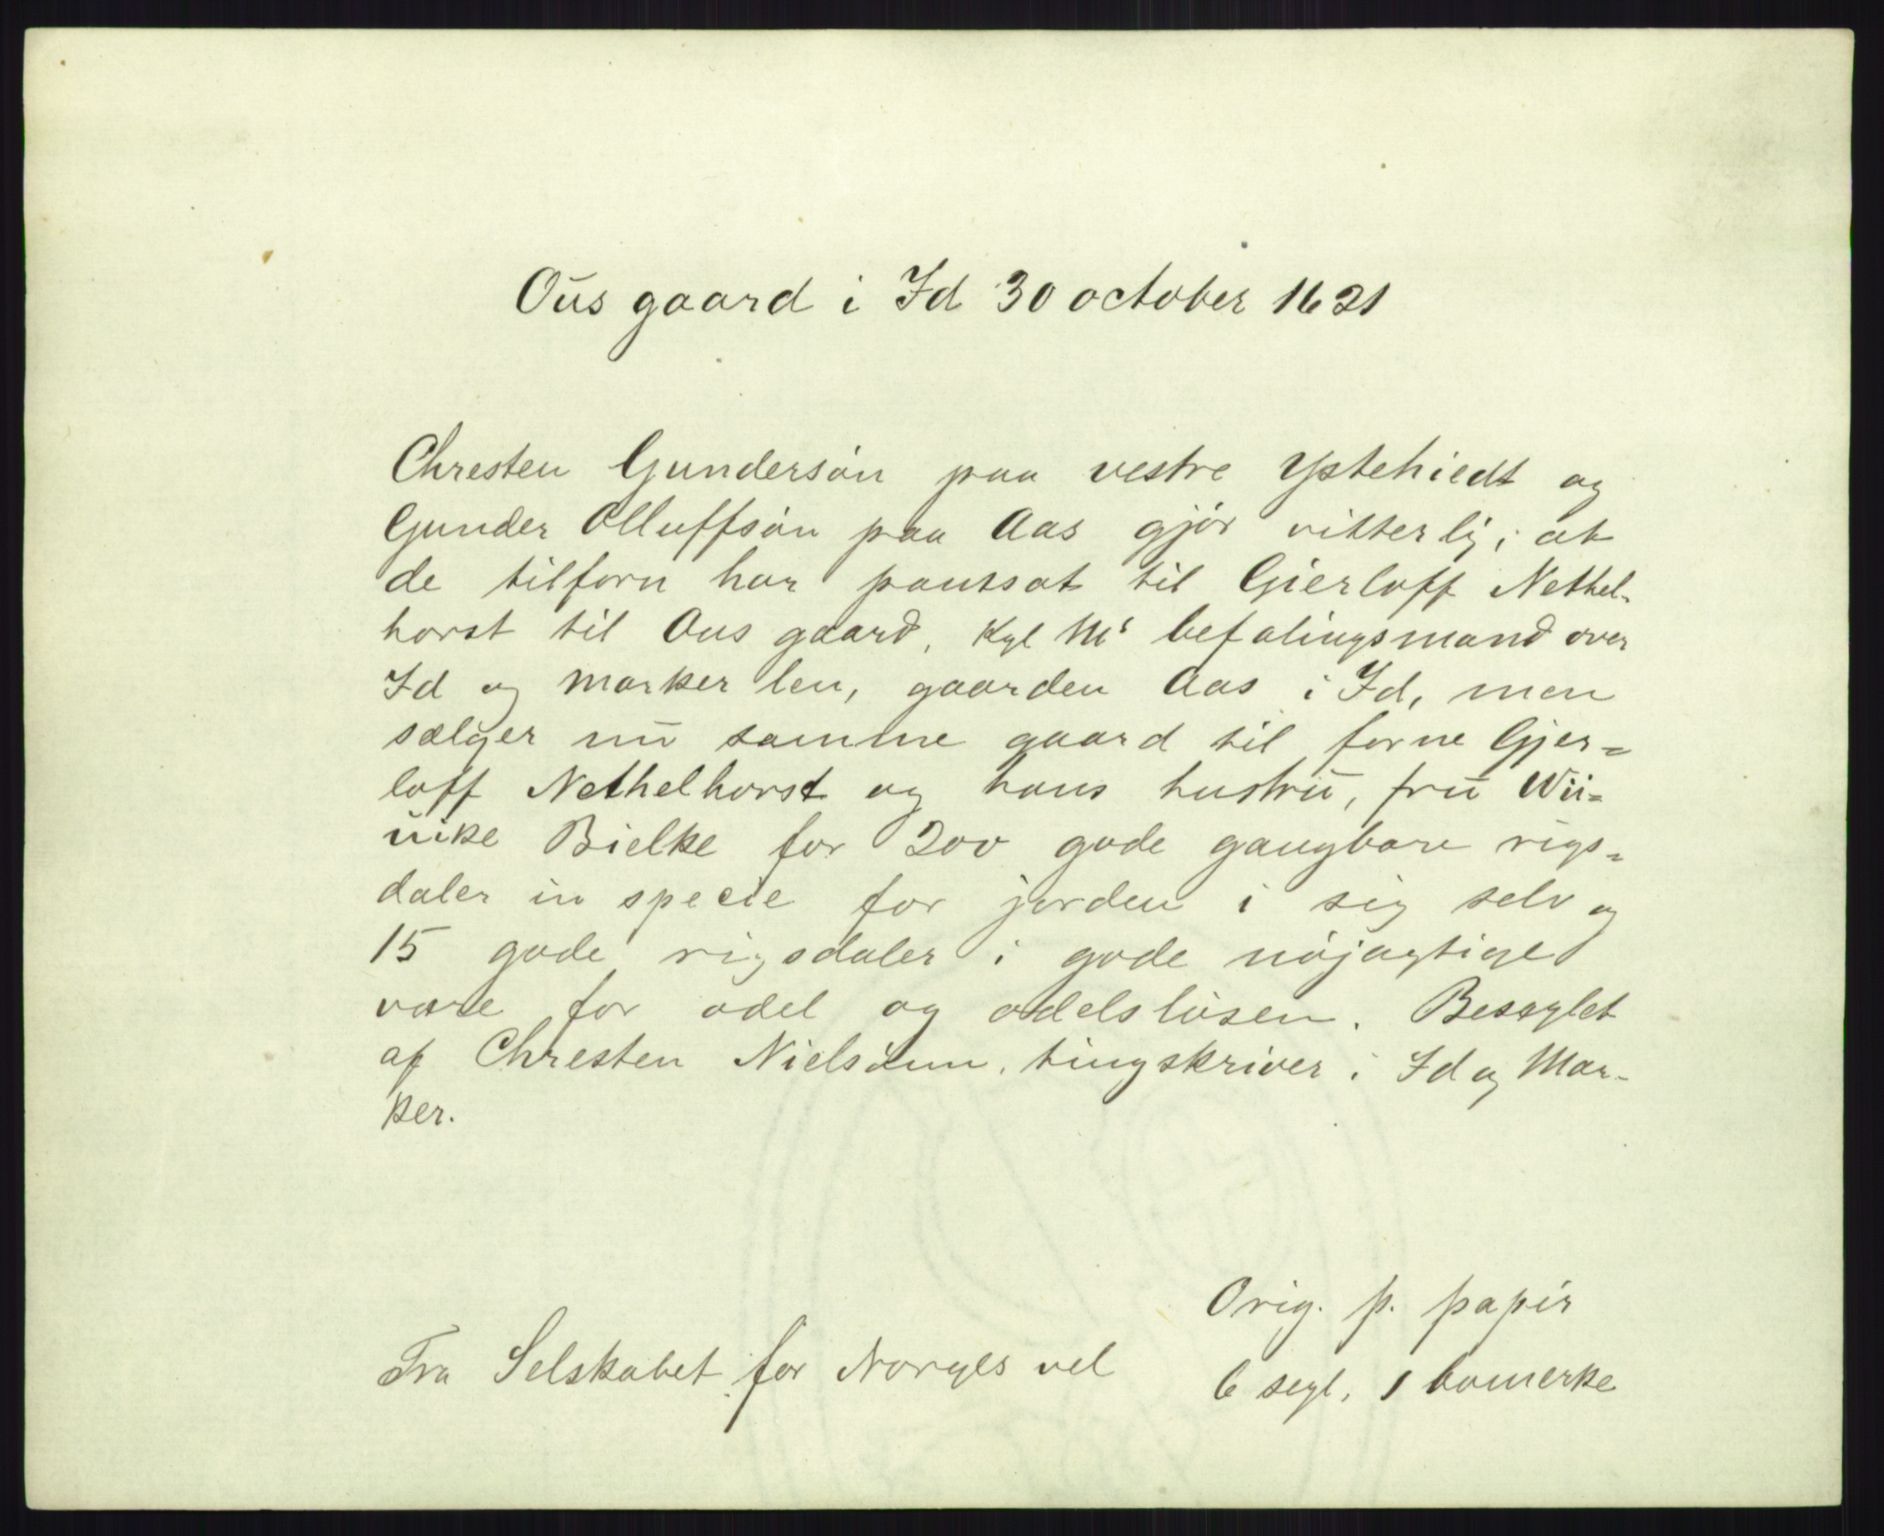 Ous gaard i Id 30 october 1621
Chresten Gundersön paa vestre Ystehiedt og
Gunder Olluffsön paa Aas gjör vitterlig, at
de tilforn har pantsat til Gierloff Nethel-
horst til Ous gaard, Kgl Ms befalingsmand over
Id og Marker len, gaarden Aas i Id, men
sælger nu samme gaard til forne Gjer-
loff Nethelhorst og hans hustru, fru Wii-
nike Bielke for 200 gode gangbare rigs-
daler in specie for jorden i sig selv og
15 gode rigsdaler i gode nöjagtige
vare for odel og odelslösen. Beseglet
af Chresten Nielsönn, tingskriver i Id og Mar-
ker.
Orig. p. papir
Fra Selskabet for Norges vel
6 segl, 1 bomerke